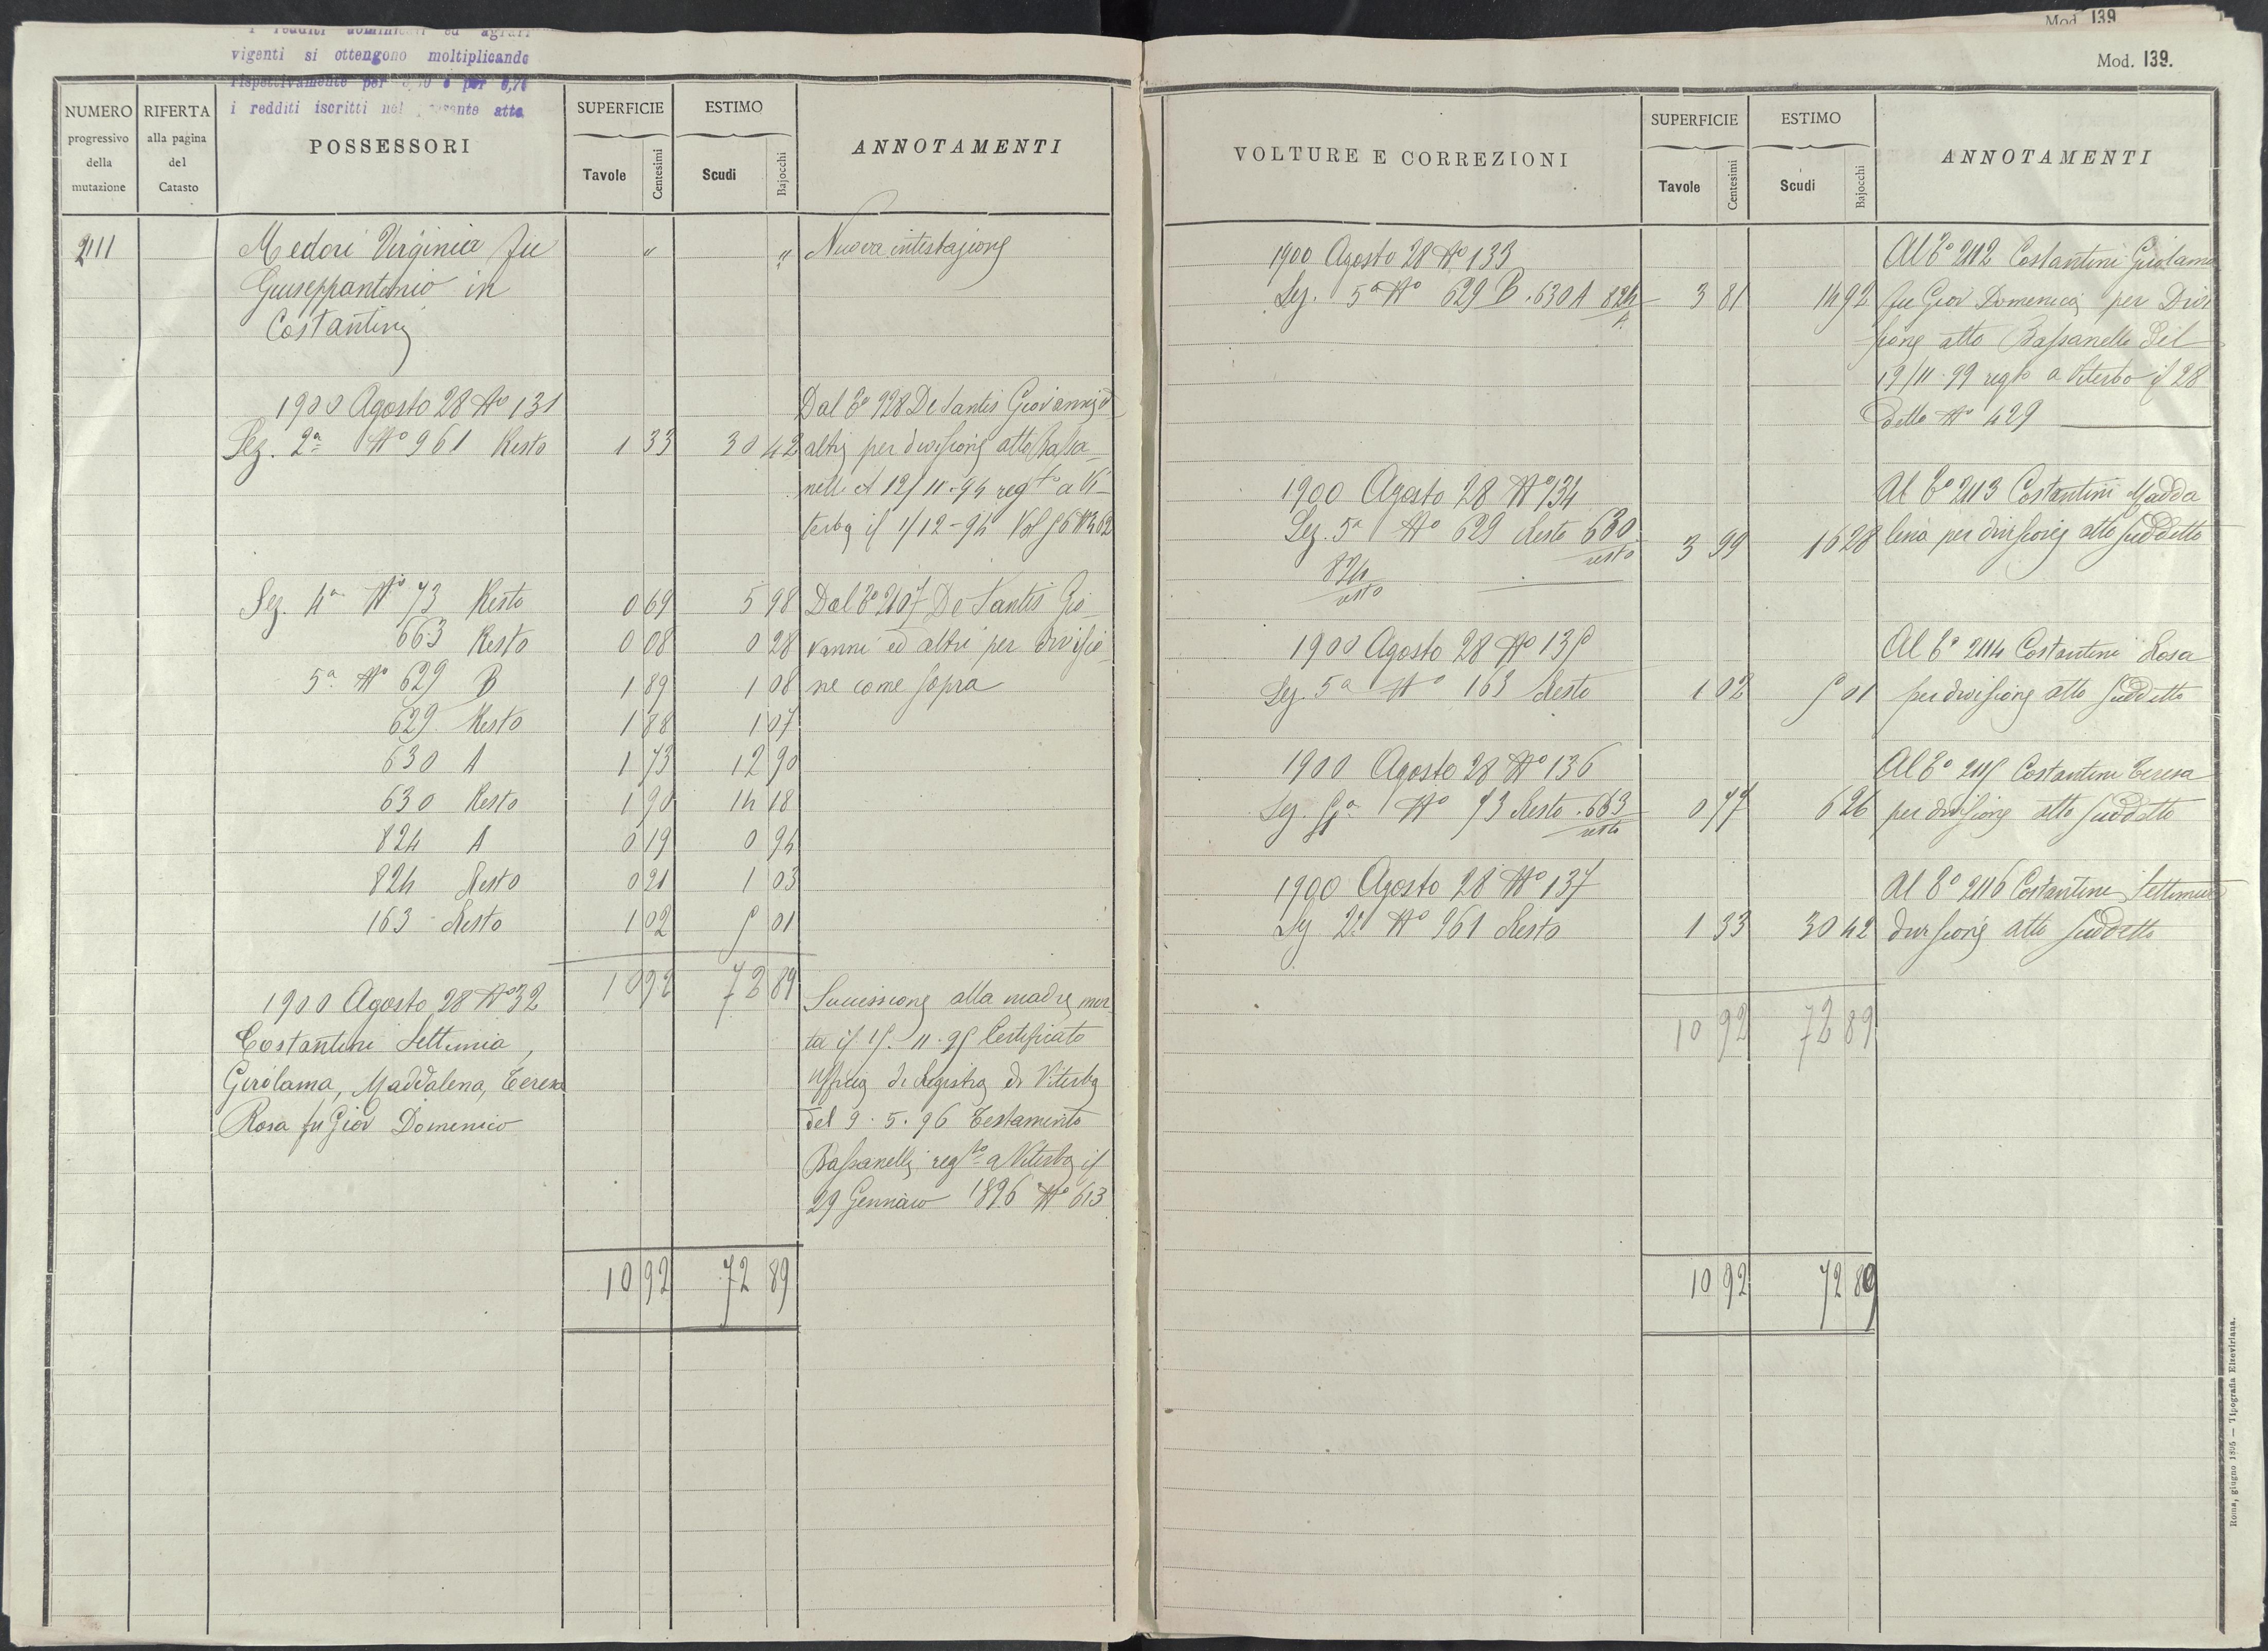 vigenti si ottengono moltiplicando
rispettivamente per
i redditi iscritti nel presente atto
NUMERO
progressivo
della
mutazione
RIFERTA
alla pagina
del
Catasto
POSSESSORI
SUPERFICIE
Tavole
Centesimi
ESTIMO
Scudi
Bajocchi
ANNOTAMENTI
2111 Medori Virginia fu " " Nuova intestazione
Giuseppantonio in
Costantini
1900 Agosto 28 No 131 Dal To 928 De Santis Giovanni ed
Sez. 2a No 961 Resto 1 33 30 42 altri per divisione atto Bassa
nelli 12/11-94 regto a Vi
terbo il 1/12-94 Vol 56 No 362
Sez. 4a No 73 Resto 0 69 5 98 Dal To 2107 De Santis Gio
663 Resto 0 08 0 28 vanni ed altri per divisio
5a No 629 B 1 89 1 08 ne come sopra
629 Resto 1 88 1 07
630 A 1 73 12 90
630 Resto 1 90 14 18
824 A 0 19 0 94
824 Resto 0 21 1 03
163 Resto 1 02 5 01
10 92 72 89
1900 Agosto 28 No 132 Successione alla madre mor
Costantini Settimia, ta il 15. 11. 95 Certificato
Girolama, Maddalena, Teresa Ufficio di Registro di Viterbo
Rosa fu Giov Domenico del 9. 5. 96 Testamento
Bassanelli regto a Viterbo il
29 Gennaio 1896 No 613
10 92 72 89
Mod. 139
Mod. 139.
VOLTURE E CORREZIONI
SUPERFICIE
Tavole
Centesimi
ESTIMO
Scudi
Bajocchi
ANNOTAMENTI
1900 Agosto 28 No 133 Al To 2112 Costantini Girolama
Sez. 5a No 629 B. 630 A 824 A. 3 81 14 92 fu Giov Domenico per Divi
sione atto Bassanelli del
19/11-99 regto a Viterbo il 28
detto No 429
1900 Agosto 28 No 134 Al To 2113 Costantini Madda
Sez. 5a No 629 Resto 630 resto 3 99 16 28 lena per divisione atto suddetto
824 resto
1900 Agosto 28 No 135 Al To 2114 Costantini Rosa
Sez. 5a No 163 Resto 1 02 5 01 per divisione atto suddetto
1900 Agosto 28 No 136 Al To 2115 Costantini Teresa
Sez. No 73 Resto. 663 resto 0 77 6 26 per divisione atto suddetto
1900 Agosto 28 No 137 Al To 2116 Costantini Settimia
Sez 2a No 961 Resto 1 33 30 42 divisione atto suddetto
10 92 72 89
10 92 72 89
Roma, giugno 1895 — Tipografia Elzeviriana.